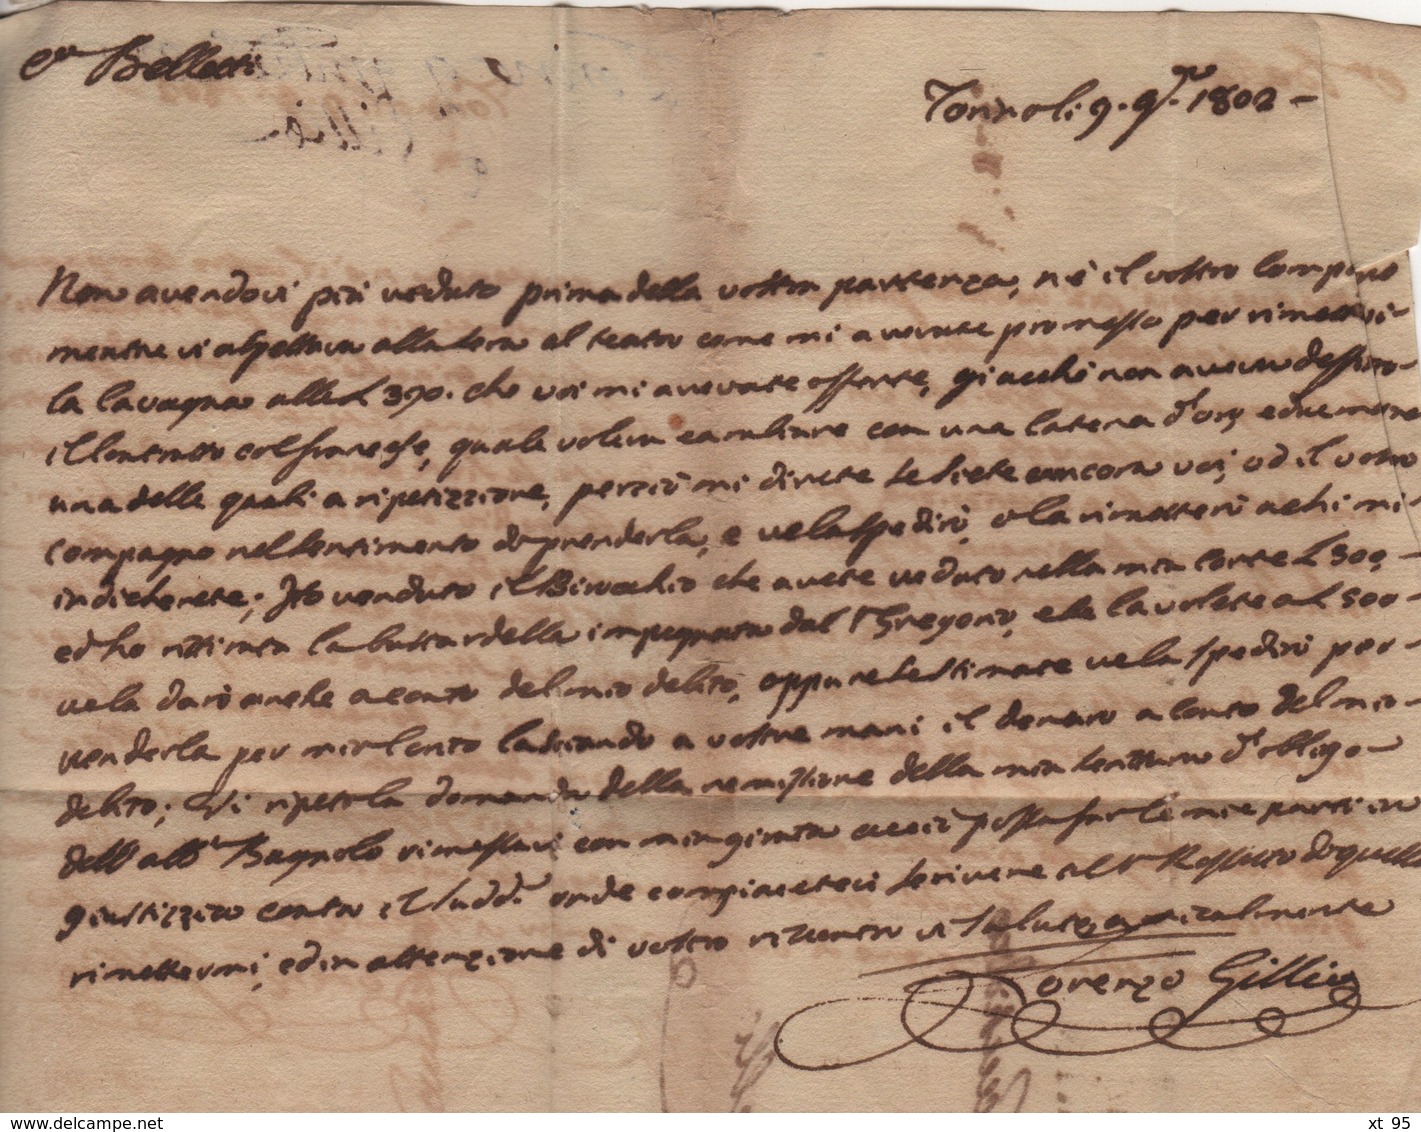 Torino li 9. 9bre 1802 -
Non avendovi più veduto prima della vostra partenza, nè il vostro
mentre vi aspettava alla sera al teatro come mi avevate promesso per
la lavagna alle L 390. che voi mi avevate offerte, giacchè non aveva
il contratto col quale voleva cambiare con una catena d'oro, e due
una delle quali a ripetizzione, perciò mi direte se siete ancora voi, od il vostro
compagno nel sentimento di prenderla, e ve la spedirò, o la rimetterò a chi mi
indicherete; Ho venduto il Birocchio che avete veduto nella mia corte L 300,
ed ho ritirata la bastardella impegnata dal Sr Gregorio, e se la volete a L 500
ve la darò anche a conto del mio debito, oppure se stimate ve la spedirò per
venderla per mio conto lasciando a vostre mani il denaro a conto del mio
debito; Vi ripeto la domanda della remissione della mia scrittura d'obbligo
dell' abbe Bagnolo rimessavi con mia girata acciò possa far le mie parti in
giustizia contro il sudd.o onde compiacetevi scrivere al Sr Rossetto di quella
rimettermi, ed in attenzione di vostro riscontro vi saluto cordialmente
Lorenzo Gillio
xt 95